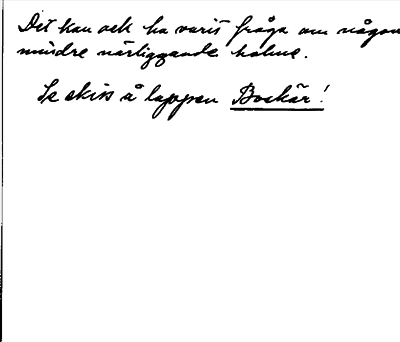 Det kan ock ha varit fråga om någon
mindre närliggande holme.
Se skiss å lappen Boskär!